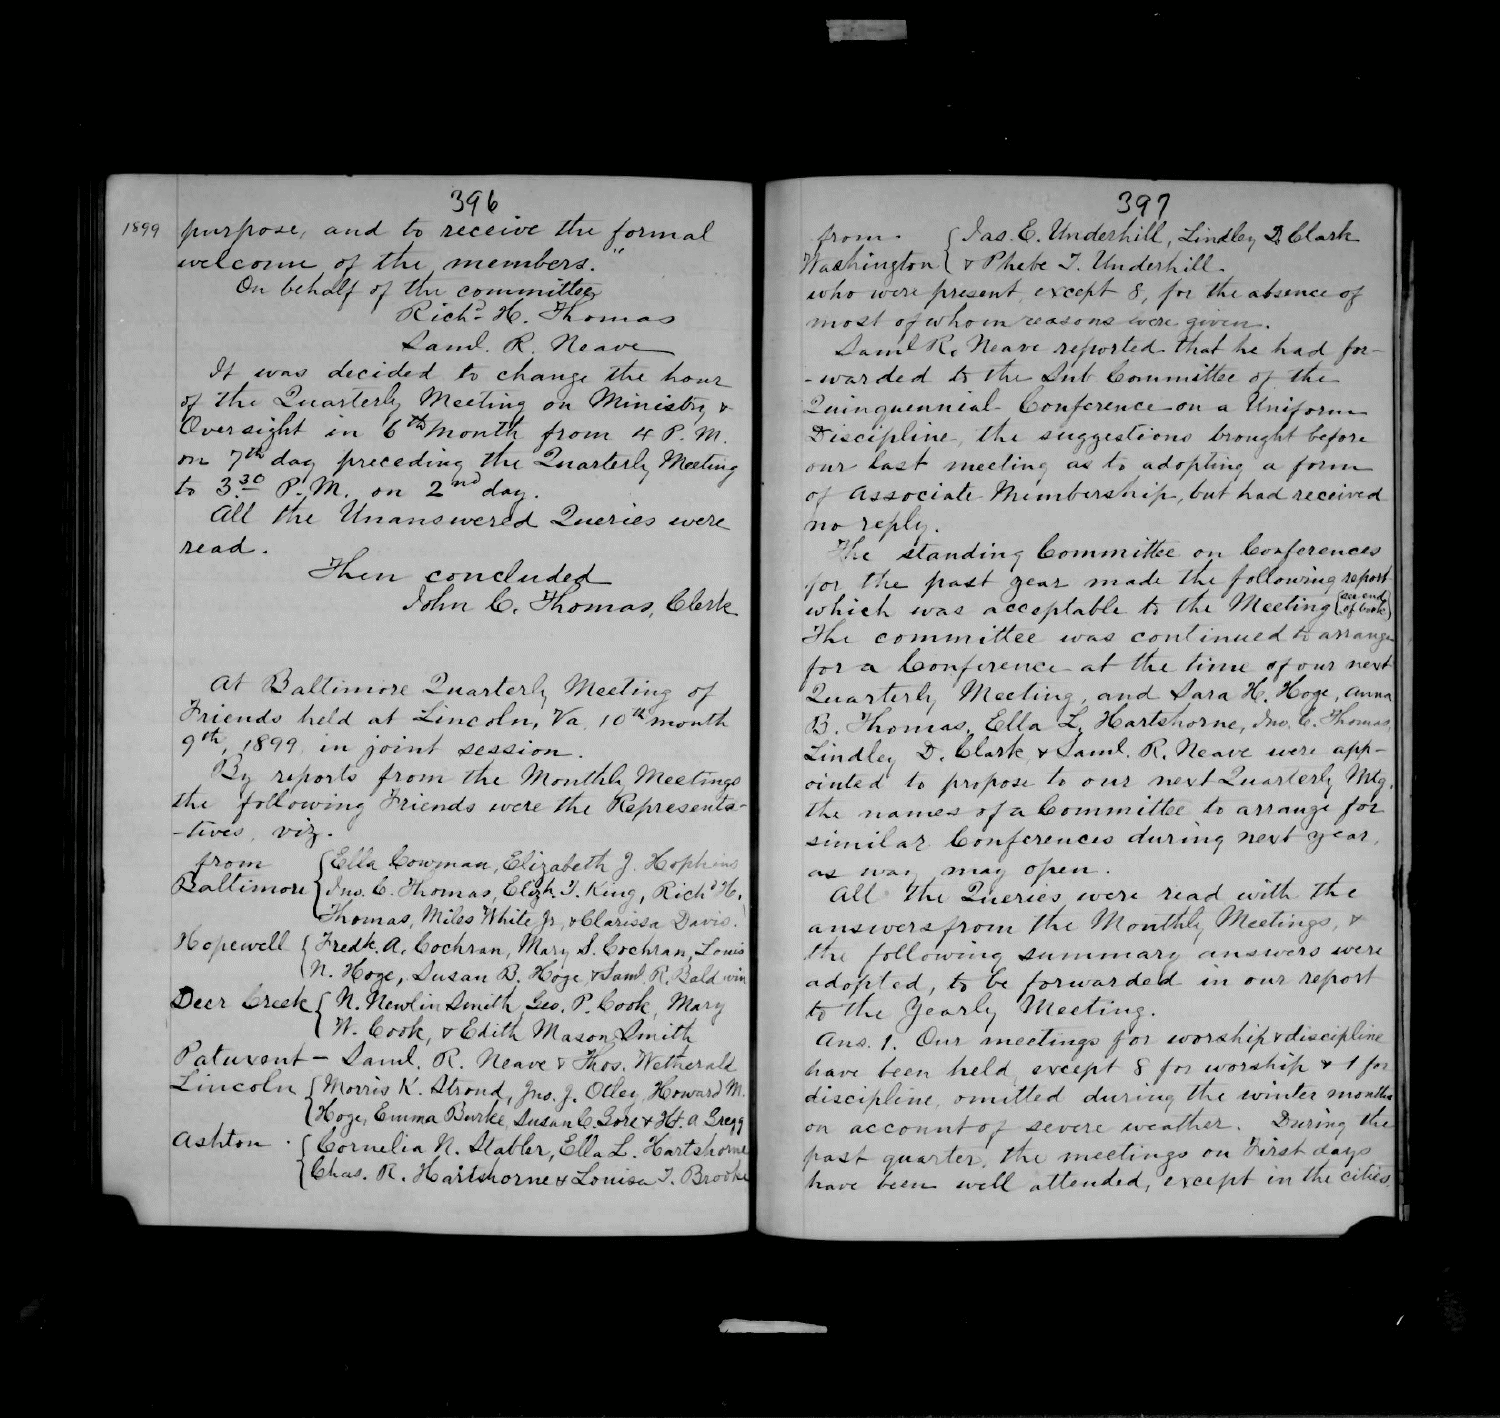 396
1899 purpose, and to receive the formal
welcome of the members."
On behalf of the committee,
Richd. H. Thomas
Saml. R. Neave
It was decided to change the hour
of the Quarterly Meeting on Ministry &
Oversight in 6th month from 4 P.M.
on 7th day preceding the Quarterly Meeting
to 3.30 P.M. on 2nd day.
All the Unanswered Queries were
read.
Then concluded
John C. Thomas, Clerk
At Baltimore Quarterly Meeting of
Friends held at Lincoln, Va. 10th month
9th, 1899 in joint session.
By reports from the Monthly Meetings
the following Friends were the Representa-
-tives, viz.
from { Ella Cowman, Elizabeth J. Hopkins
Baltimore { Jno. C. Thomas, Elizh. T. King, Richd H.
Thomas, Miles White, Jr., & Clarissa Davis.
Hopewell { Fredk. A. Cochran, Mary S. Cochran, Louis
N. Hoge, Susan B. Hoge & Saml. R. Baldwin
Deer Creek { N. Newlin Smith, Geo. P. Cook, Mary
W. Cook, & Edith Mason Smith
Patuxent - Saml. R. Neave & Thos. Wetherald
Lincoln { Morris K. Stroud, Jno. J. Otley, Howard M.
Hoge, Emma Burke, Susan C. Gore & H. A Gregg
Ashton { Cornelia N. Stabler, Ella L. Hartshorne
Chas. R. Hartshorne & Louisa T. Brooke
397
from { Jas. E. Underhill, Lindley D. Clark
Washington { & Phebe T. Underhill.
who were present, except 8, for the absence of
most of whom reasons were given.
Saml R. Neave reported that he had for-
-warded to the Sub Committee of the
Quinquennial Conference on a Uniform
Discipline, the suggestions brought before
our last meeting as to adopting a form
of Associate Membership, but had received
no reply.
The standing Committee on Conferences
for the past year made the following report
which was acceptable to the Meeting (see end
of book)
The committee was continued to arrange
for a Conference at the time of our next
Quarterly Meeting, and Sara H. Hoge, Anna
B. Thomas, Ella L. Hartshorne, Jno. C. Thomas,
Lindley D. Clark & Saml. R. Neave were app-
ointed to propose to our next Quarterly Mtg.
the names of a Committee to arrange for
similar Conferences during next year,
as way may open.
All the Queries were read with the
answers from the Monthly Meetings, &
the following summary answers were
adopted, to be forwarded in our report
to the Yearly Meeting.
Ans. 1. Our meetings for worship & discipline
have been held, except 8 for worship & 1 for
discipline, omitted during the winter months
on account of severe weather. During the
past quarter, the meetings on First days
have been well attended, except in the cities,